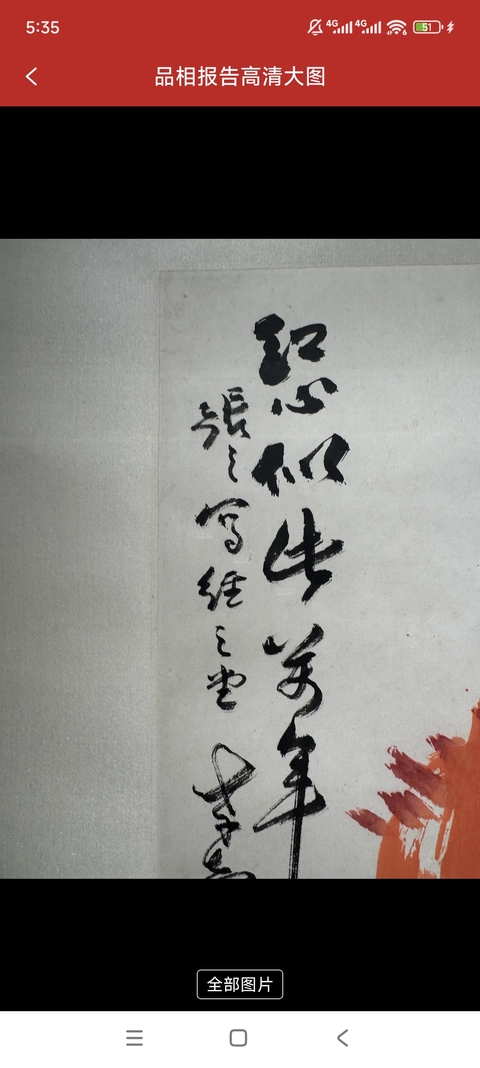 5:35
4G 4G 51
品相报告高清大图
心似萬年
張寫經之堂
全部图片